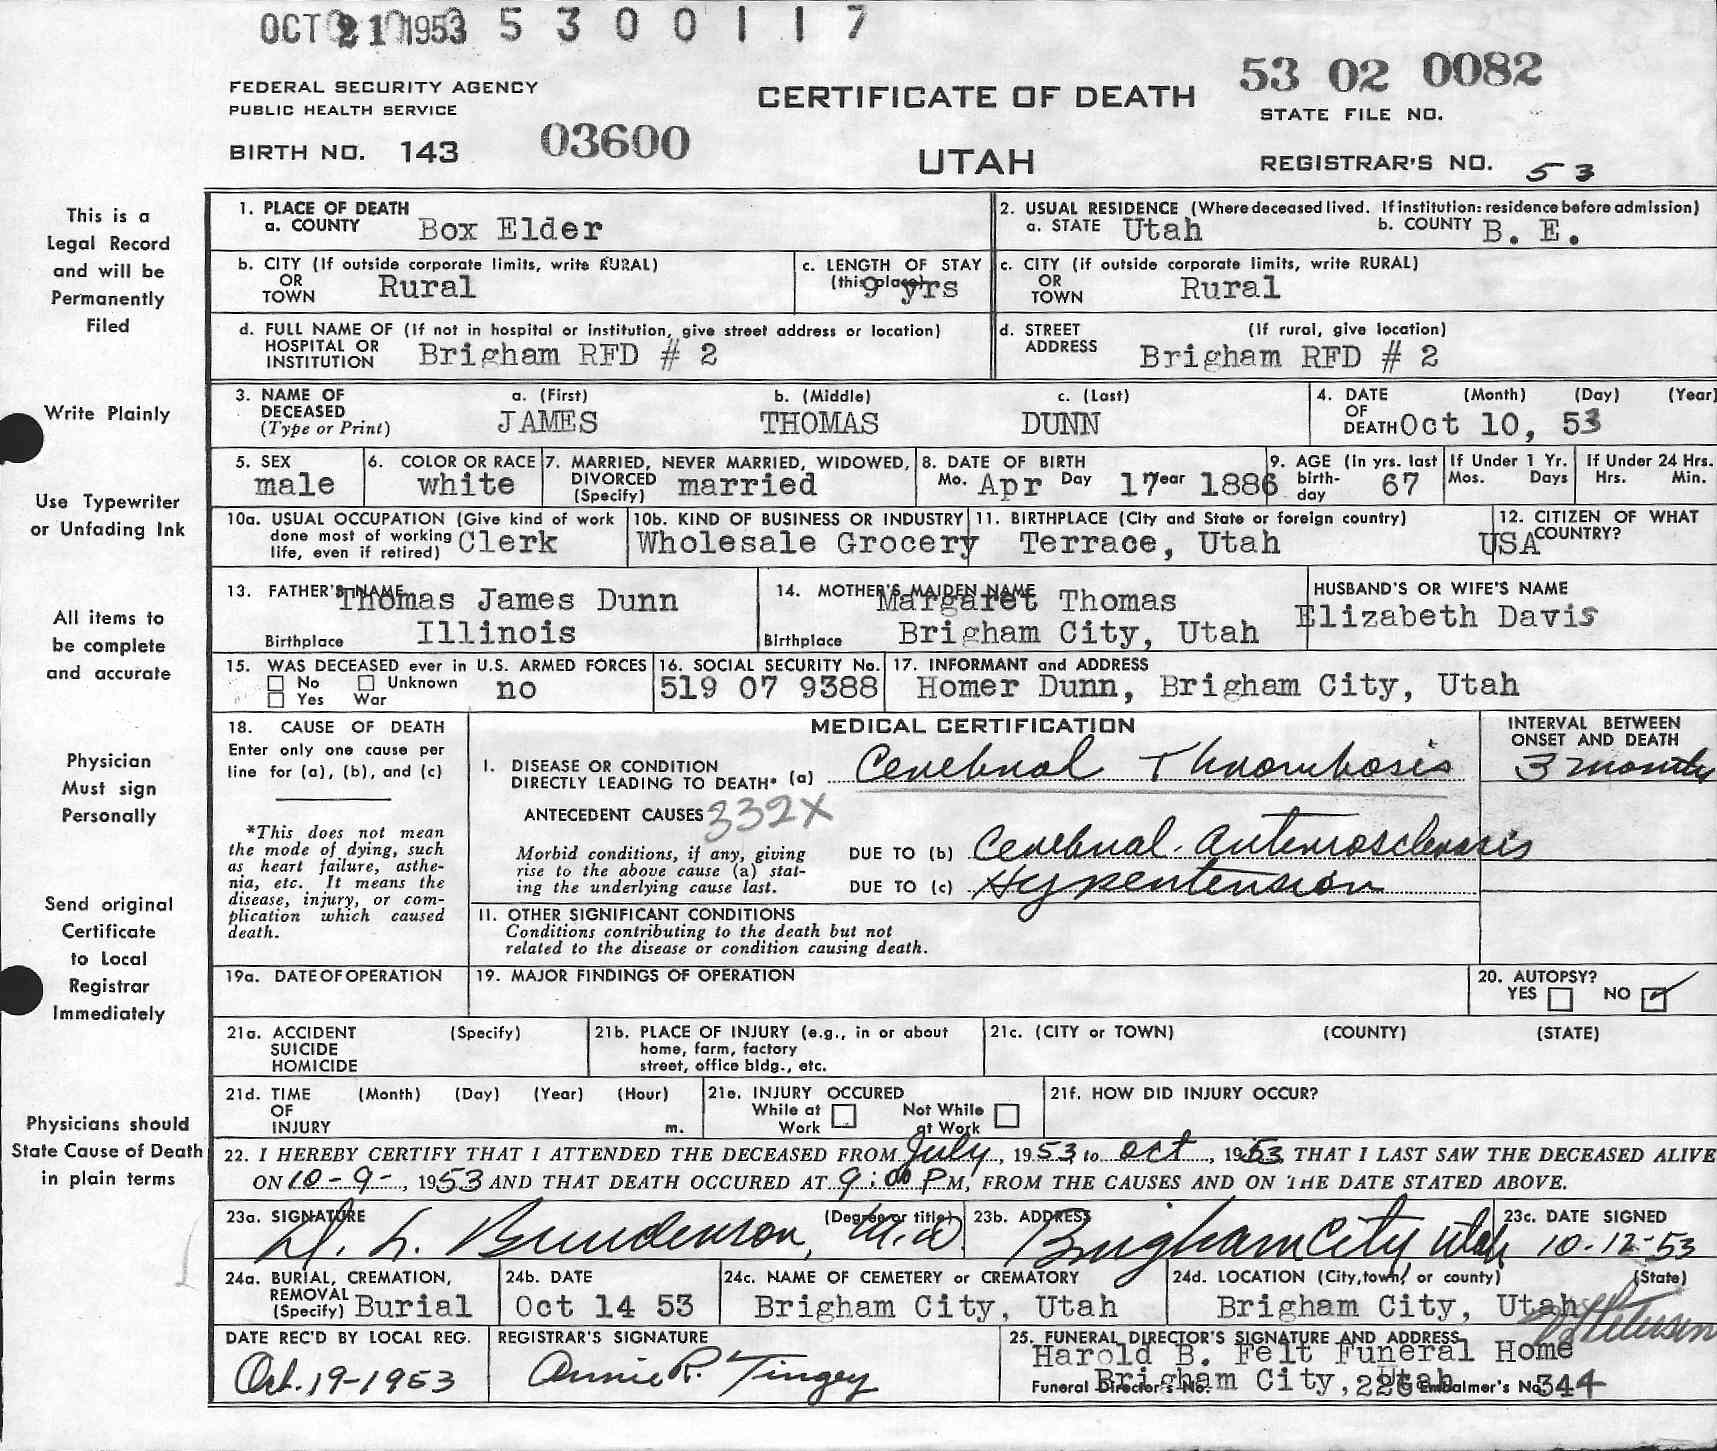 OCT 21 1953 5 3 0 0 1 1 7
53 02 0082
FEDERAL SECURITY AGENCY
PUBLIC HEALTH SERVICE
CERTIFICATE OF DEATH
STATE FILE NO.
BIRTH NO. 143 03600
UTAH
REGISTRAR'S NO. 53
This is a
Legal Record
and will be
Permanently
Filed
Write Plainly
Use Typewriter
or Unfading Ink
All items to
be complete
and accurate
Physician
Must sign
Personally
Send original
Certificate
to Local
Registrar
Immediately
Physicians should
State Cause of Death
in plain terms
1. PLACE OF DEATH
a. COUNTY Box Elder
2. USUAL RESIDENCE (Where deceased lived. If institution: residence before admission)
a. STATE Utah b. COUNTY B. E.
b. CITY (If outside corporate limits, write RURAL)
OR
TOWN Rural
c. LENGTH OF STAY
(this place) 9 yrs
c. CITY (if outside corporate limits, write RURAL)
OR
TOWN Rural
d. FULL NAME OF (If not in hospital or institution, give street address or location)
HOSPITAL OR
INSTITUTION Brigham RFD # 2
d. STREET (If rural, give location)
ADDRESS Brigham RFD # 2
3. NAME OF a. (First) b. (Middle) c. (Last)
DECEASED
(Type or Print) JAMES THOMAS DUNN
4. DATE (Month) (Day) (Year)
OF
DEATH Oct 10, 53
5. SEX
male
6. COLOR OR RACE
white
7. MARRIED, NEVER MARRIED, WIDOWED,
DIVORCED
(Specify) married
8. DATE OF BIRTH
Mo. Apr Day 17 Year 1886
9. AGE (In yrs. last
birth-
day 67
If Under 1 Yr.
Mos. Days
If Under 24 Hrs.
Hrs. Min.
10a. USUAL OCCUPATION (Give kind of work
done most of working
life, even if retired) Clerk
10b. KIND OF BUSINESS OR INDUSTRY
Wholesale Grocery
11. BIRTHPLACE (City and State or foreign country)
Terrace, Utah
12. CITIZEN OF WHAT
COUNTRY?
USA
13. FATHER'S NAME
Thomas James Dunn
Birthplace Illinois
14. MOTHER'S MAIDEN NAME
Margaret Thomas
Birthplace Brigham City, Utah
HUSBAND'S OR WIFE'S NAME
Elizabeth Davis
15. WAS DECEASED ever in U.S. ARMED FORCES
No Unknown no
Yes War
16. SOCIAL SECURITY No.
519 07 9388
17. INFORMANT and ADDRESS
Homer Dunn, Brigham City, Utah
18. CAUSE OF DEATH
Enter only one cause per
line for (a), (b), and (c)
*This does not mean
the mode of dying, such
as heart failure, asthe-
nia, etc. It means the
disease, injury, or com-
plication which caused
death.
MEDICAL CERTIFICATION
INTERVAL BETWEEN
ONSET AND DEATH
I. DISEASE OR CONDITION
DIRECTLY LEADING TO DEATH* (a) Cerebral Thrombosis 3 months
ANTECEDENT CAUSES 332X
Morbid conditions, if any, giving
rise to the above cause (a) stat-
ing the underlying cause last.
DUE TO (b) Cerebral arteriosclerosis
DUE TO (c) Hypertension
II. OTHER SIGNIFICANT CONDITIONS
Conditions contributing to the death but not
related to the disease or condition causing death.
19a. DATE OF OPERATION
19. MAJOR FINDINGS OF OPERATION
20. AUTOPSY?
YES NO ✓
21a. ACCIDENT (Specify)
SUICIDE
HOMICIDE
21b. PLACE OF INJURY (e.g., in or about
home, farm, factory
street, office bldg., etc.
21c. (CITY or TOWN) (COUNTY) (STATE)
21d. TIME (Month) (Day) (Year) (Hour)
OF
INJURY m.
21e. INJURY OCCURED
While at Not While
Work at Work
21f. HOW DID INJURY OCCUR?
22. I HEREBY CERTIFY THAT I ATTENDED THE DECEASED FROM July, 1953 to Oct, 1953 THAT I LAST SAW THE DECEASED ALIVE
ON 10-9-, 1953 AND THAT DEATH OCCURED AT 9:00 P M, FROM THE CAUSES AND ON THE DATE STATED ABOVE.
23a. SIGNATURE (Degree or title)
D. L. Bunderson, M.D
23b. ADDRESS
Brigham City Utah
23c. DATE SIGNED
10-12-53
24a. BURIAL, CREMATION,
REMOVAL
(Specify) Burial
24b. DATE
Oct 14 53
24c. NAME OF CEMETERY or CREMATORY
Brigham City, Utah
24d. LOCATION (City, town, or county) (State)
Brigham City, Utah
DATE REC'D BY LOCAL REG.
Oct. 19-1953
REGISTRAR'S SIGNATURE
Annie R. Tingey
25. FUNERAL DIRECTOR'S SIGNATURE AND ADDRESS
Harold B. Felt Funeral Home
Brigham City, Utah
Funeral Director's No. 226 Embalmer's No. 344